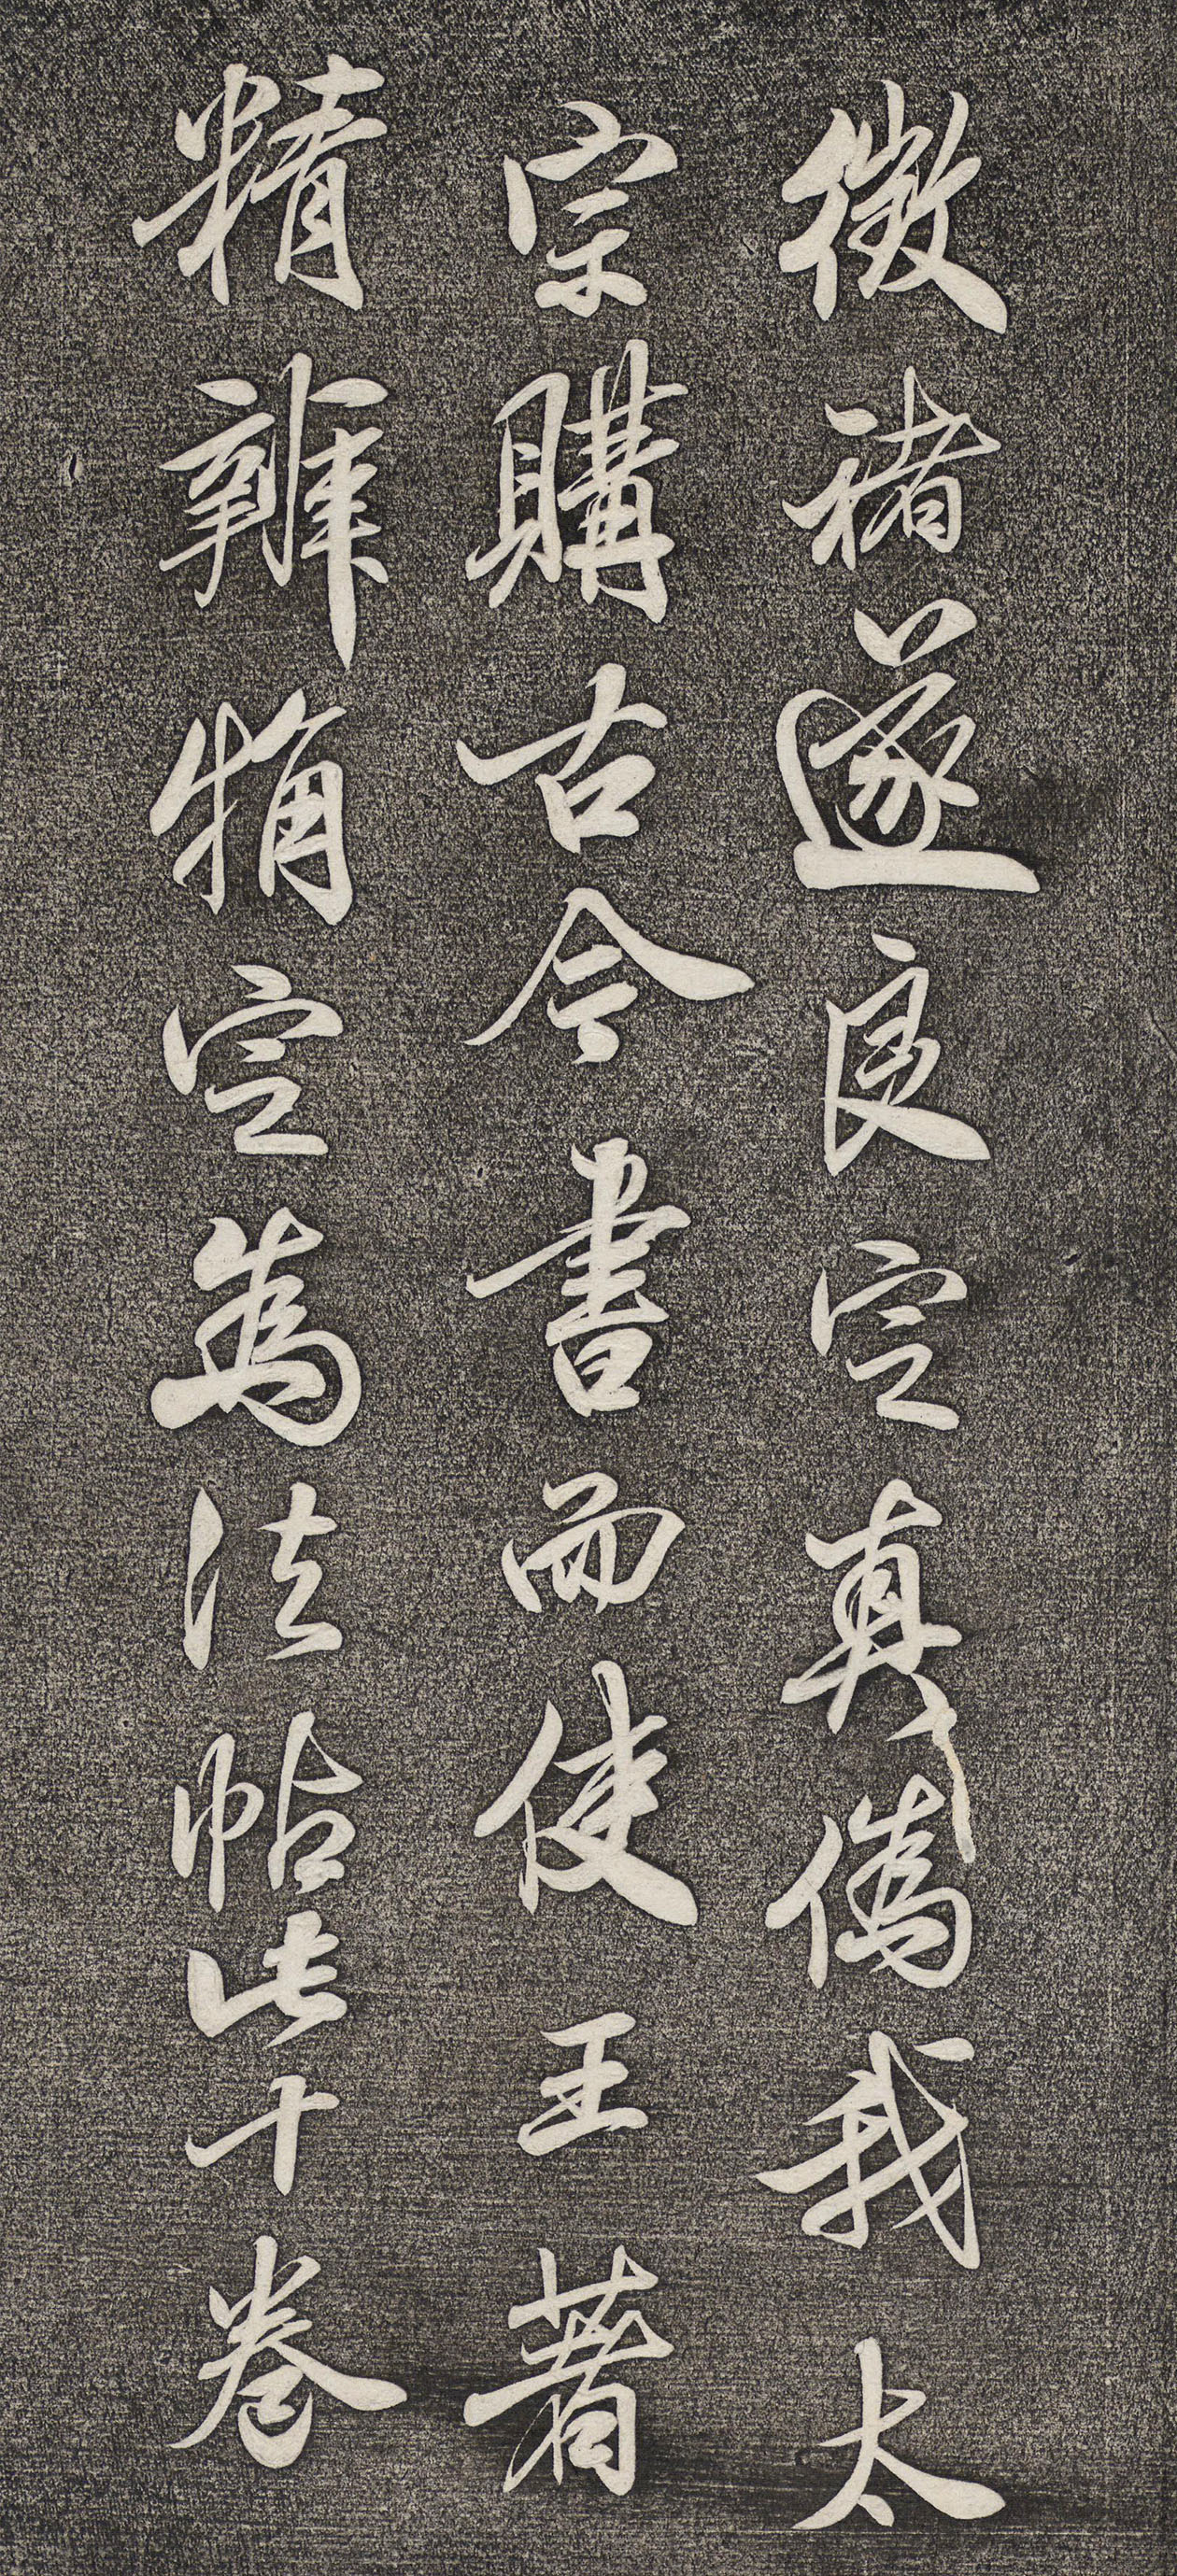 徵褚遂良定真偽我太
宗購古今書而使王著
精辨精定為法帖此十卷